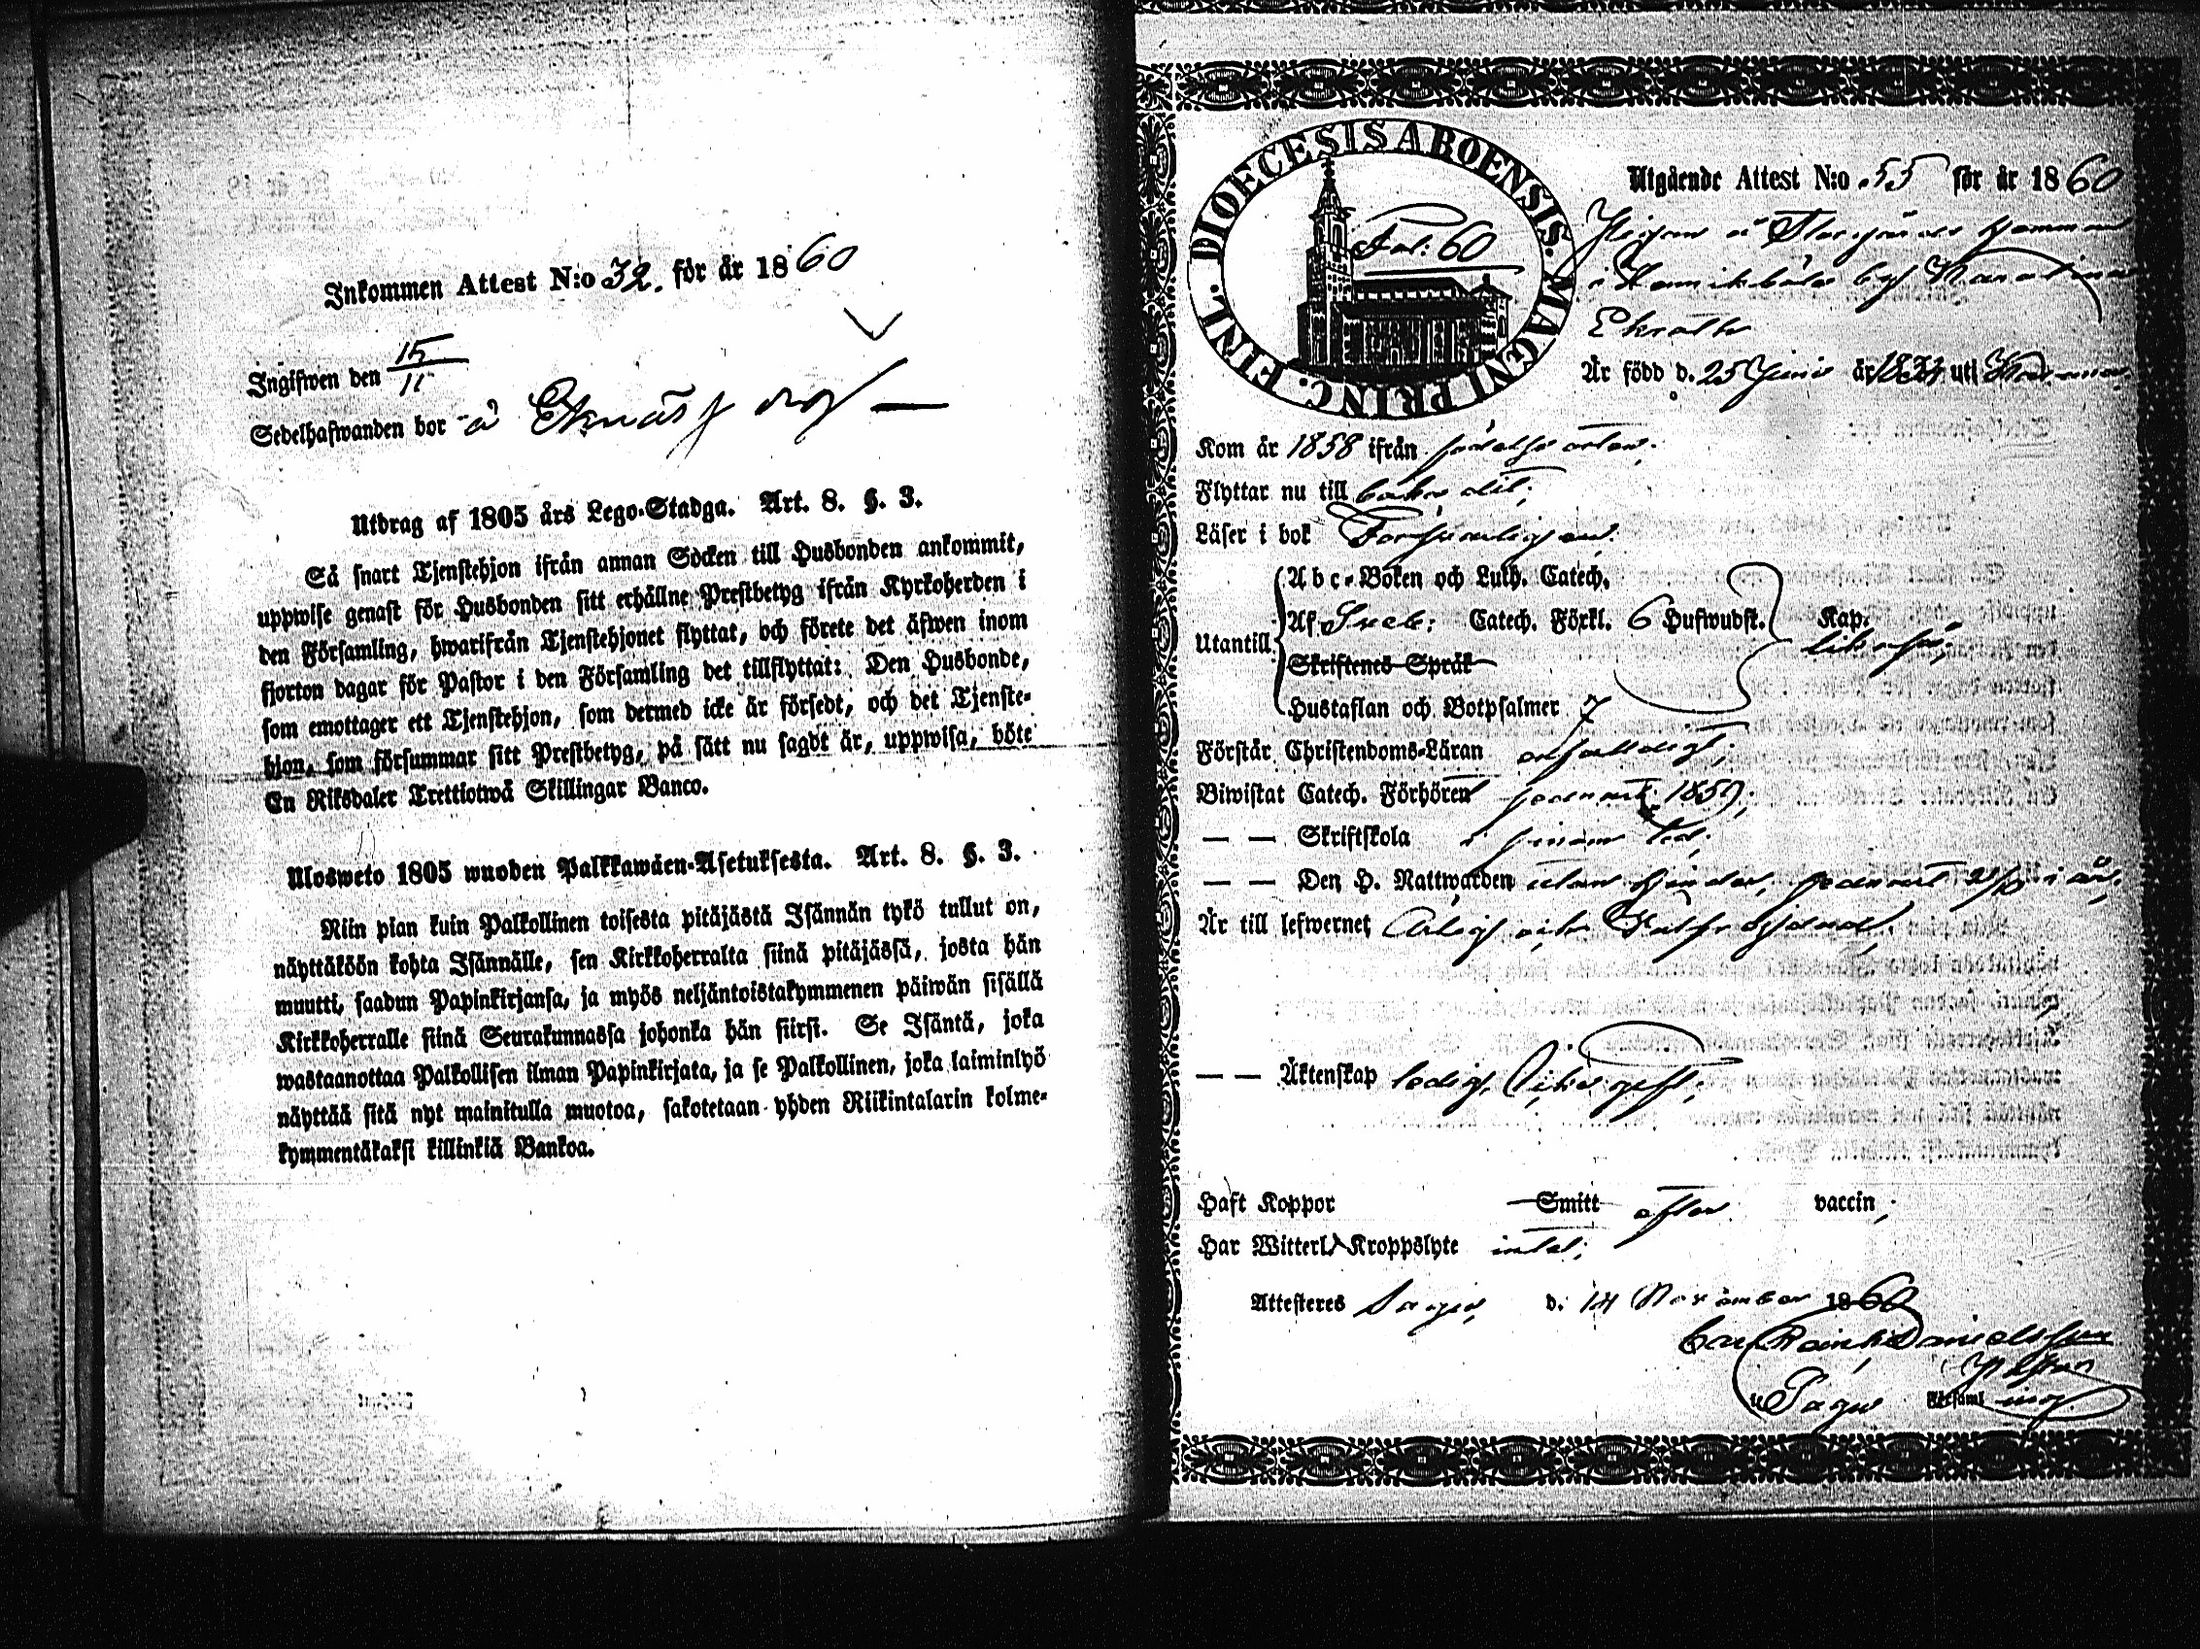 Inkommen Attest N:o 32. för år 1860
Ingifwen den 15/11
Sedelhafwanden bor å Eknäs
Utdrag af 1805 års Lego-Stadga. Art. 8. §. 3.
Så snart Tjenstehjon ifrån annan Socken till Husbonden ankommit,
uppwise genast för Husbonden sitt erhållne Prestbetyg ifrån Kyrkoherden i
den Församling, hwarifrån Tjenstehjonet flyttat, och förete det äfwen inom
fjorton dagar för Pastor i den Församling det tillflyttat: Den Husbonde,
som emottager ett Tjenstehjon, som dermed icke är försedt, och det Tjenste-
hjon, som försummar sitt Prestbetyg, på sätt nu sagdt är, uppwisa, böte
En Riksdaler Trettiotwå Skillingar Banco.
Ulosweto 1805 wuoden Palkkawäen-Asetuksesta. Art. 8. §. 3.
Niin pian kuin Palkollinen toisesta pitäjästä Isännän tykö tullut on,
näyttäköön kohta Isännälle, sen Kirkkoherralta siinä pitäjässä, josta hän
muutti, saadun Papinkirjansa, ja myös neljäntoistakymmenen päiwän sisällä
Kirkkoherralle siinä Seurakunnassa johonka hän siirsi. Se Isäntä, joka
wastaanottaa Palkollisen ilman Papinkirjata, ja se Palkollinen, joka laiminlyö
näyttää sitä nyt mainitulla muotoa, sakotetaan yhden Riikintalarin kolme-
kymmentäkaksi killinkiä Bankoa.
DIOECESIS ABOENSIS. MAGNI PRINC. FINL.
Fol: 60
Utgående Attest N:o 55 för år 1860
Pigan å
i by
Är född d. 25 Junii år 1834 uti
Kom år 1858 ifrån födelse orten;
Flyttar nu till åter dit;
Läser i bok Försvarligen;
Utantill
Abc-Boken och Luth. Catech.
Af Sveb: Catech. Förkl. 6 Hufwudst. Kap.
Skriftenes Språk
likaså;
Hustaflan och Botpsalmer 7
Förstår Christendoms-Läran enfaldigt;
Biwistat Catech. Förhören senast 1859;
— — Skriftskola i sinom tid;
— — Den H. Nattwarden utan hinder, senast i år;
Är till lefwernet Ärlig och
— — Äktenskap ledig;
Haft Koppor Smitt efter vaccin;
Har Witterl. Kroppslyte intet;
Attesteres Sagu, d. 14 November 1860
Danielsson
Sagu Församl ing.